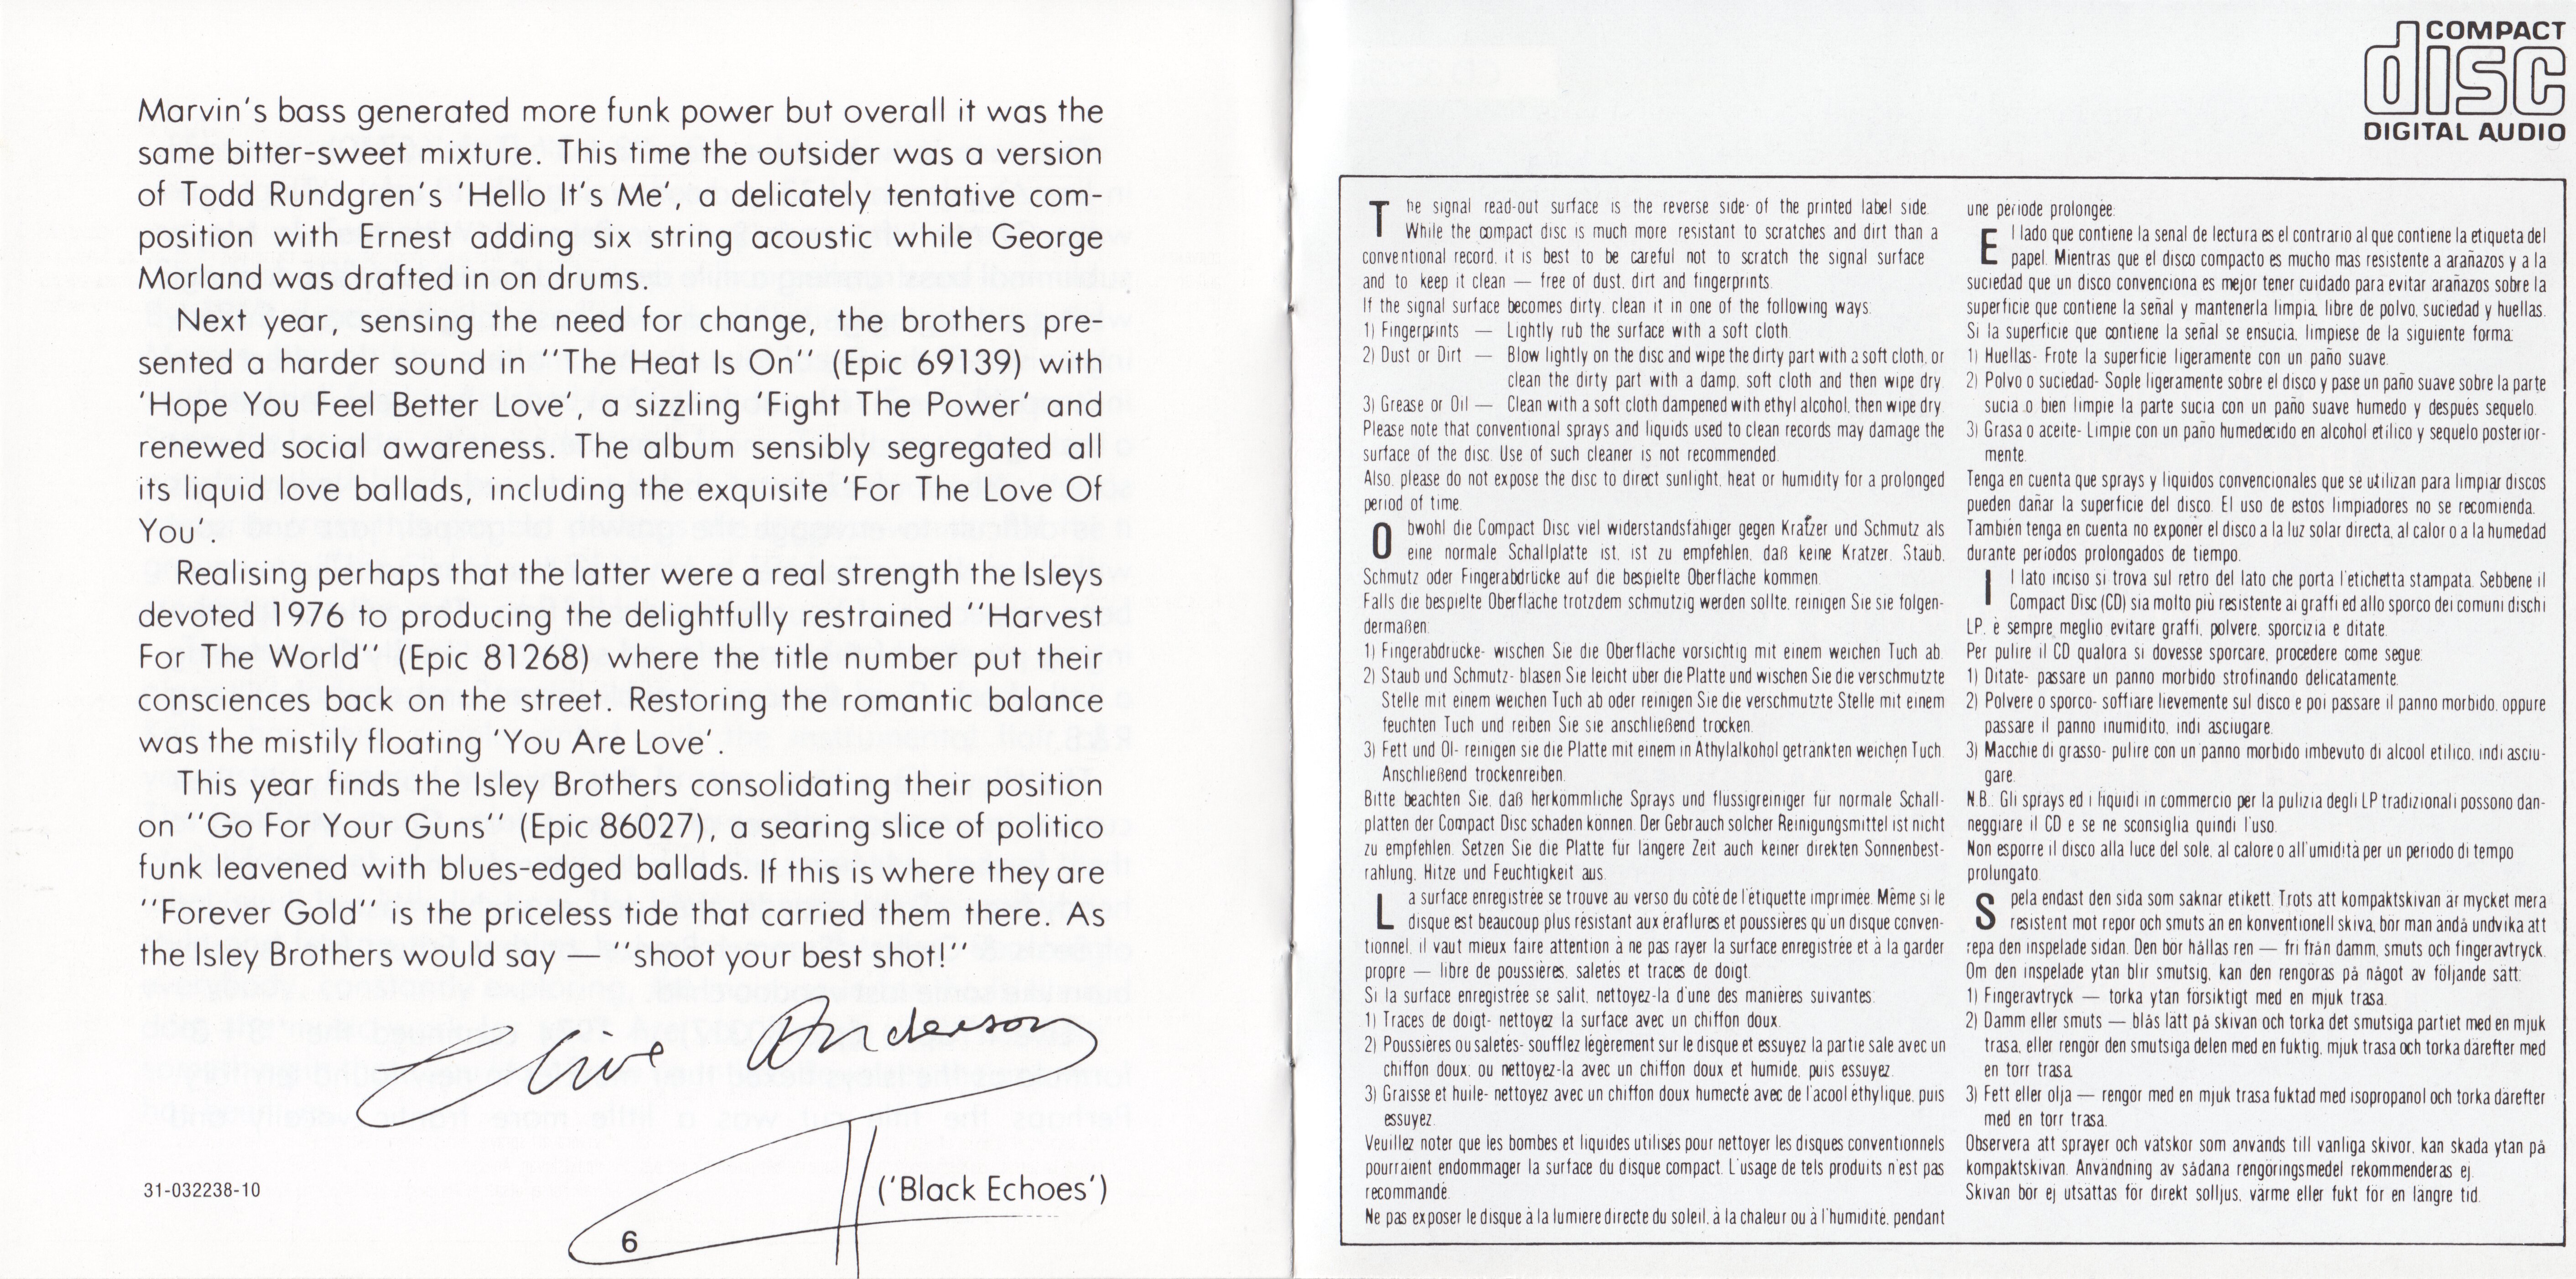 Marvin's bass generated more funk power but overall it was the
same bitter-sweet mixture. This time the outsider was a version
of Todd Rundgren's 'Hello It's Me', a delicately tentative com-
position with Ernest adding six string acoustic while George
Morland was drafted in on drums.
Next year, sensing the need for change, the brothers pre-
sented a harder sound in "The Heat Is On" (Epic 69139) with
'Hope You Feel Better Love', a sizzling 'Fight The Power' and
renewed social awareness. The album sensibly segregated all
its liquid love ballads, including the exquisite 'For The Love Of
You'.
Realising perhaps that the latter were a real strength the Isleys
devoted 1976 to producing the delightfully restrained "Harvest
For The World" (Epic 81268) where the title number put their
consciences back on the street. Restoring the romantic balance
was the mistily floating 'You Are Love'.
This year finds the Isley Brothers consolidating their position
on "Go For Your Guns" (Epic 86027), a searing slice of politico
funk leavened with blues-edged ballads. If this is where they are
"Forever Gold" is the priceless tide that carried them there. As
the Isley Brothers would say — "shoot your best shot!"
Clive Anderson
('Black Echoes')
31-032238-10
6
COMPACT
disc
DIGITAL AUDIO
The signal read-out surface is the reverse side of the printed label side.
While the compact disc is much more resistant to scratches and dirt than a
conventional record, it is best to be careful not to scratch the signal surface
and to keep it clean — free of dust, dirt and fingerprints.
If the signal surface becomes dirty, clean it in one of the following ways:
1) Fingerprints — Lightly rub the surface with a soft cloth.
2) Dust or Dirt — Blow lightly on the disc and wipe the dirty part with a soft cloth, or
clean the dirty part with a damp, soft cloth and then wipe dry.
3) Grease or Oil — Clean with a soft cloth dampened with ethyl alcohol, then wipe dry.
Please note that conventional sprays and liquids used to clean records may damage the
surface of the disc. Use of such cleaner is not recommended.
Also, please do not expose the disc to direct sunlight, heat or humidity for a prolonged
period of time.
Obwohl die Compact Disc viel widerstandsfähiger gegen Kratzer und Schmutz als
eine normale Schallplatte ist, ist zu empfehlen, daß keine Kratzer, Staub,
Schmutz oder Fingerabdrücke auf die bespielte Oberfläche kommen.
Falls die bespielte Oberfläche trotzdem schmutzig werden sollte, reinigen Sie sie folgen-
dermaßen:
1) Fingerabdrücke- wischen Sie die Oberfläche vorsichtig mit einem weichen Tuch ab.
2) Staub und Schmutz- blasen Sie leicht über die Platte und wischen Sie die verschmutzte
Stelle mit einem weichen Tuch ab oder reinigen Sie die verschmutzte Stelle mit einem
feuchten Tuch und reiben Sie sie anschließend trocken.
3) Fett und Öl- reinigen sie die Platte mit einem in Äthylalkohol getränkten weichen Tuch.
Anschließend trockenreiben.
Bitte beachten Sie, daß herkömmliche Sprays und flüssigreiniger für normale Schall-
platten der Compact Disc schaden können. Der Gebrauch solcher Reinigungsmittel ist nicht
zu empfehlen. Setzen Sie die Platte für längere Zeit auch keiner direkten Sonnenbest-
rahlung, Hitze und Feuchtigkeit aus.
La surface enregistrée se trouve au verso du côté de l'étiquette imprimée. Même si le
disque est beaucoup plus résistant aux éraflures et poussières qu'un disque conven-
tionnel, il vaut mieux faire attention à ne pas rayer la surface enregistrée et à la garder
propre — libre de poussières, saletés et traces de doigt.
Si la surface enregistrée se salit, nettoyez-la d'une des manières suivantes:
1) Traces de doigt- nettoyez la surface avec un chiffon doux.
2) Poussières ou saletés- soufflez légèrement sur le disque et essuyez la partie sale avec un
chiffon doux, ou nettoyez-la avec un chiffon doux et humide, puis essuyez.
3) Graisse et huile- nettoyez avec un chiffon doux humecté avec de l'acool éthylique, puis
essuyez.
Veuillez noter que les bombes et liquides utilisés pour nettoyer les disques conventionnels
pourraient endommager la surface du disque compact. L'usage de tels produits n'est pas
recommandé.
Ne pas exposer le disque à la lumière directe du soleil, à la chaleur ou à l'humidité, pendant
une période prolongée.
El lado que contiene la senal de lectura es el contrario al que contiene la etiqueta del
papel. Mientras que el disco compacto es mucho mas resistente a arañazos y a la
suciedad que un disco convenciona es mejor tener cuidado para evitar arañazos sobre la
superficie que contiene la señal y mantenerla limpia, libre de polvo, suciedad y huellas.
Si la superficie que contiene la señal se ensucia, limpiese de la siguiente forma:
1) Huellas- Frote la superficie ligeramente con un paño suave.
2) Polvo o suciedad- Sople ligeramente sobre el disco y pase un paño suave sobre la parte
sucia o bien limpie la parte sucia con un paño suave humedo y después sequelo.
3) Grasa o aceite- Limpie con un paño humedecido en alcohol etilico y sequelo posterior-
mente.
Tenga en cuenta que sprays y liquidos convencionales que se utilizan para limpiar discos
pueden dañar la superficie del disco. El uso de estos limpiadores no se recomienda.
También tenga en cuenta no exponer el disco a la luz solar directa, al calor o a la humedad
durante periodos prolongados de tiempo.
Il lato inciso si trova sul retro del lato che porta l'etichetta stampata. Sebbene il
Compact Disc (CD) sia molto più resistente ai graffi ed allo sporco dei comuni dischi
LP, è sempre meglio evitare graffi, polvere, sporcizia e ditate.
Per pulire il CD qualora si dovesse sporcare, procedere come segue:
1) Ditate- passare un panno morbido strofinando delicatamente.
2) Polvere o sporco- soffiare lievemente sul disco e poi passare il panno morbido, oppure
passare il panno inumidito, indi asciugare.
3) Macchie di grasso- pulire con un panno morbido imbevuto di alcool etilico, indi asciu-
gare.
N.B.: Gli sprays ed i liquidi in commercio per la pulizia degli LP tradizionali possono dan-
neggiare il CD e se ne sconsiglia quindi l'uso.
Non esporre il disco alla luce del sole, al calore o all'umidità per un periodo di tempo
prolungato.
Spela endast den sida som saknar etikett. Trots att kompaktskivan är mycket mera
resistent mot repor och smuts än en konventionell skiva, bör man ändå undvika att
repa den inspelade sidan. Den bör hållas ren — fri från damm, smuts och fingeravtryck.
Om den inspelade ytan blir smutsig, kan den rengöras på något av följande sätt:
1) Fingeravtryck — torka ytan försiktigt med en mjuk trasa.
2) Damm eller smuts — blås lätt på skivan och torka det smutsiga partiet med en mjuk
trasa, eller rengör den smutsiga delen med en fuktig, mjuk trasa och torka därefter med
en torr trasa.
3) Fett eller olja — rengör med en mjuk trasa fuktad med isopropanol och torka därefter
med en torr trasa.
Observera att sprayer och vätskor som används till vanliga skivor, kan skada ytan på
kompaktskivan. Användning av sådana rengöringsmedel rekommenderas ej.
Skivan bör ej utsättas för direkt solljus, värme eller fukt för en längre tid.